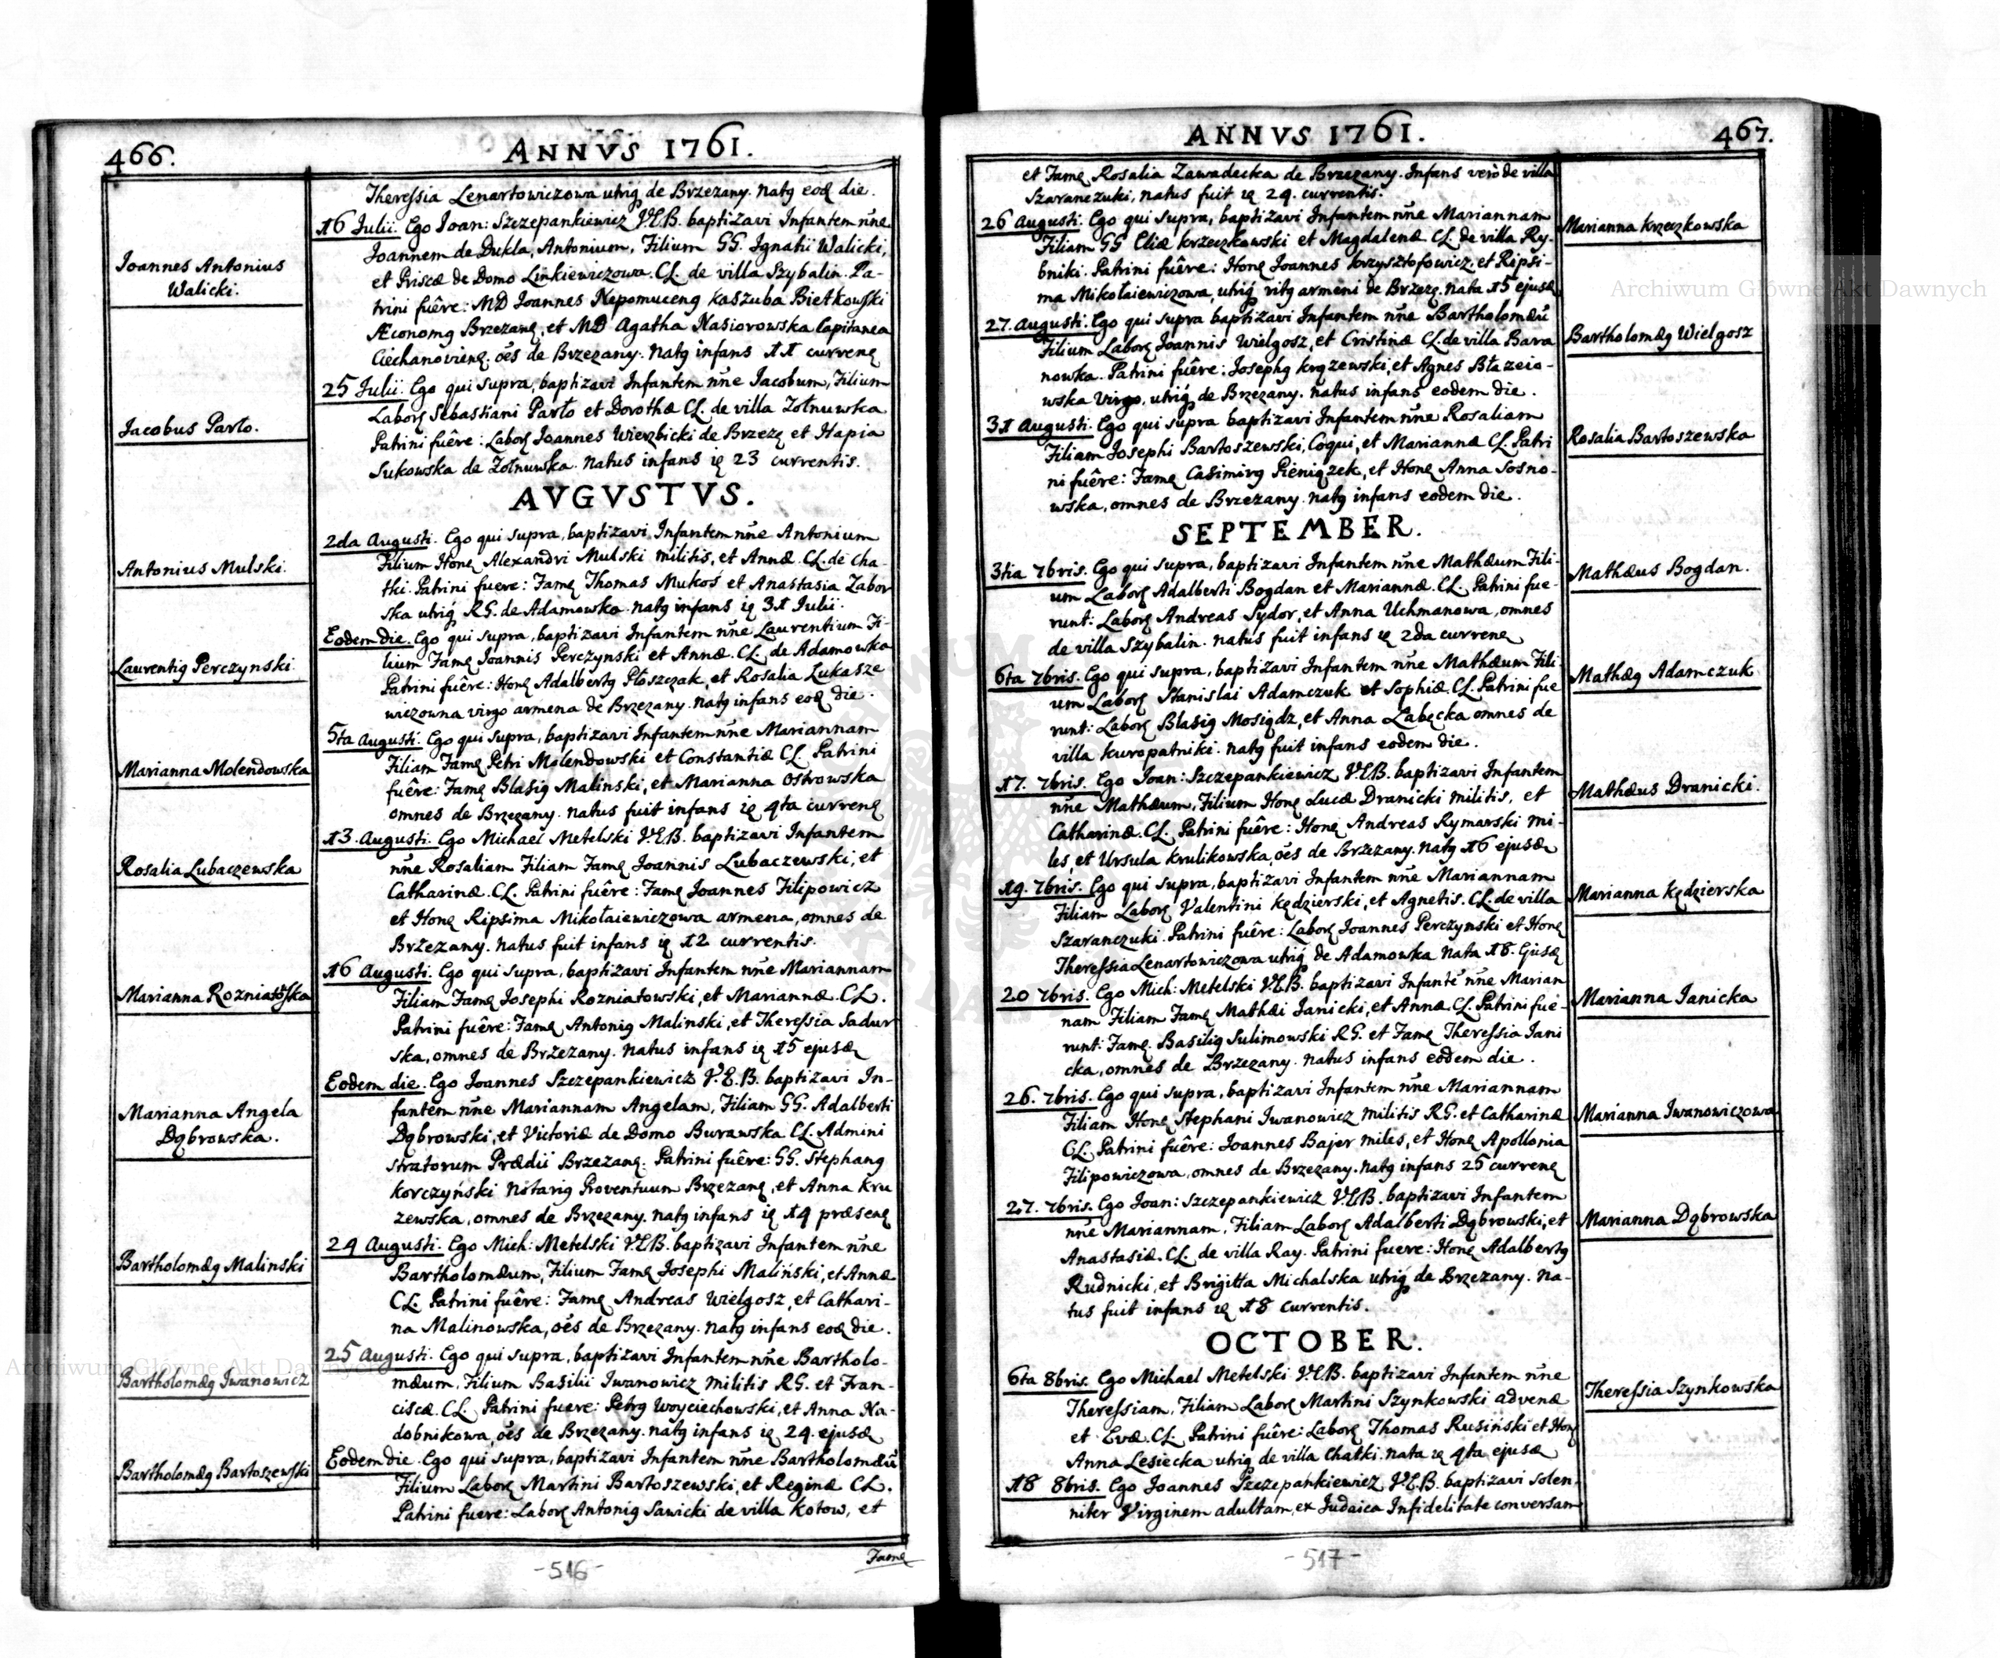 466.
ANNVS 1761.
Theressia Lenartowiczowa utriq de Brzezany. natq eod die.
Joannes Antonius
Walicki.
16 Julii. Ego Joan: Szczepankiewicz V.E.B. baptizavi Infantem nñe
Joannem de Dukla, Antonium, Filium GG. Ignatii Walicki,
et Priscæ de Domo Linkiewiczowa. CL. de villa Szybalin. Pa-
trini fuêre: MD Joannes Nepomucenq Kaszuba Bietkowski
Æconomq Brzezanę, et MD Agatha Nasiorowska Capitanea
Ciechanovienę. oẽs de Brzezany. natq infans 11 currenę
Jacobus Parło.
25 Julii. Ego qui supra, baptizavi Infantem nñe Jacobum, Filium
Laborę Sebastiani Parło et Dorothæ CL. de villa Zołnuwka
Patrini fuêre: Laborę Joannes Wierzbicki de Brzezę et Hapia
Sukowska de Zołnuwka. natus infans ię 23 currentis.
AVGVSTVS.
Antonius Mulski.
2da Augusti. Ego qui supra, baptizavi Infantem nñe Antonium
Filium Honę Alexandri Mulski militis, et Annæ CL. de Cha-
tki. Patrini fuere: Famę Thomas Mukoś et Anastasia Zabor
ska utriq RG. de Adamowka. natq infans ię 31 Julii.
Laurentiq Perczynski.
Eodem die. Ego qui supra, baptizavi Infantem nñe Laurentium Fi-
lium Famę Joannis Perczynski et Annæ. CL. de Adamowka
Patrini fuêre: Honę Adalbertq Płoszczak, et Rosalia Lukasze
wiczowna virgo armena de Brzezany. natq infans eod die.
Marianna Molendowska
5ta Augusti. Ego qui supra, baptizavi Infantem nñe Mariannam
Filiam Famę Petri Molendowski et Constantiæ CL. Patrini
fuêre: Famę Blasiq Malinski, et Marianna Ostrowska
omnes de Brzezany. natus fuit infans ię 4ta currenę
Rosalia Lubaczewska
13. Augusti. Ego Michael Metelski V.E.B. baptizavi Infantem
nñe Rosaliam Filiam Famę Joannis Lubaczewski, et
Catharinæ. CL. Patrini fuêre: Famę Joannes Filipowicz
et Honę Ripsima Mikołaiewiczowa armena, omnes de
Brzezany. natus fuit infans ię 12 currentis.
Marianna Rozniatowska
16 Augusti. Ego qui supra, baptizavi Infantem nñe Mariannam
Filiam Famę Josephi Rozniatowski, et Mariannæ. CL.
Patrini fuêre: Famę Antoniq Malinski, et Theressia Sadur
ska, omnes de Brzezany. natus infans ię 15 ejusdę
Marianna Angela
Dąbrowska.
Eodem die. Ego Joannes Szczepankiewicz V.E.B. baptizavi In-
fantem nñe Mariannam Angelam, Filiam GG. Adalberti
Dąbrowski, et Victoriæ de Domo Burawska CL. Admini
stratorum Prædii Brzezanę. Patrini fuêre: GG. Stephanq
Korczyński Notariq Proventuum Brzezanę, et Anna Kru
zewska, omnes de Brzezany. natq infans ię 14 præsenę
Bartholomæq Malinski
24 Augusti. Ego Mich: Metelski V.E.B. baptizavi Infantem nñe
Bartholomæum, Filium Famę Josephi Maliński, et Annæ
CL. Patrini fuêre: Famę Andreas Wielgosz, et Cathari-
na Malinowska, oẽs de Brzezany. natq infans eod die.
Bartholomæq Iwanowicz
25 Augusti. Ego qui supra, baptizavi Infantem nñe Bartholo-
mæum, Filium Basilii Iwanowicz militis RG. et Fran-
ciscæ. CL. Patrini fuere: Petrq Woyciechowski, et Anna Na-
dobnikowa, oẽs de Brzezany. natq infans ię 24. ejusdę
Bartholomæq Bartoszewski
Eodem die. Ego qui supra, baptizavi Infantem nñe Bartholomæũ
Filium Laborę Martini Bartoszewski, et Reginæ CL.
Patrini fuere: Laborę Antoniq Sawicki de villa Kotow, et
Famę
-516-
467.
ANNVS 1761.
et Famę Rosalia Zawadecka de Brzezany. Infans verò de villa
Szaranczuki, natus fuit ię 24. currentis.
26 Augusti. Ego qui supra, baptizavi Infantem nñe Mariannam
Marianna Krzeczkowska
Filiam GG Eliæ Krzeczkowski et Magdalenæ CL. de villa Ry-
bniki. Patrini fuêre: Honę Joannes Krzysztofowicz, et Ripsi-
ma Mikołaiewiczowa, utriq ritq armeni de Brzezę. nata 15 ejusdę
27. Augusti. Ego qui supra baptizavi Infantem nñe Bartholomæũ
Bartholomæq Wielgosz
Filium Laborę Joannis Wielgosz, et Cristinæ CL. de villa Bara
nowka. Patrini fuêre: Josephq Krązewski, et Agnes Błazeio-
wska Virgo, utriq de Brzezany. natus infans eodem die.
31 Augusti. Ego qui supra baptizavi Infantem nñe Rosaliam
Rosalia Bartoszewska
Filiam Josephi Bartoszewski, Coqui, et Mariannæ CL. Patri
ni fuêre: Famę Casimirq Pieniązek, et Honę Anna Sosno-
wska, omnes de Brzezany. natq infans eodem die.
SEPTEMBER.
3tia 7bris. Ego qui supra, baptizavi Infantem nñe Mathæum Fili-
Mathæus Bogdan.
um Laborę Adalberti Bogdan et Mariannæ. CL. Patrini fue-
runt: Laborę Andreas Sydor, et Anna Uchmanowa, omnes
de villa Szybalin. natus fuit infans ię 2da currenę
6ta 7bris. Ego qui supra, baptizavi Infantem nñe Mathæum Fili-
Mathæq Adamczuk
um Laborę Stanislai Adamczuk et Sophiæ CL. Patrini fue
runt: Laborę Blasiq Mosiądz, et Anna Labęcka omnes de
villa Kuropatniki. natq fuit infans eodem die.
17. 7bris. Ego Joan: Szczepankiewicz V.E.B. baptizavi Infantem
Mathæus Dranicki.
nñe Mathæum, Filium Honę Lucæ Dranicki militis, et
Catharinæ. CL. Patrini fuêre: Honę Andreas Rymarski mi-
les, et Ursula Krulikowska, oẽs de Brzezany. natq 16 ejusdę
19. 7bris. Ego qui supra, baptizavi Infantem nñe Mariannam
Marianna Kędzierska
Filiam Laborę Valentini Kędzierski, et Agnetis. CL. de villa
Szaranczuki. Patrini fuêre: Laborę Joannes Perczynski et Honę
Theressia Lenartowiczowa utriq de Adamowka nata 18. Ejusdę
20 7bris. Ego Mich: Metelski V.E.B. baptizavi Infantẽ nñe Marian
Marianna Janicka
nam Filiam Famę Mathæi Janicki, et Annæ CL. Patrini fue-
runt: Famę. Basiliq Sulimowski RG. et Famę Theressia Jani
cka, omnes de Brzezany. natus infans eodem die.
26. 7bris. Ego qui supra, baptizavi Infantem nñe Mariannam
Marianna Iwanowiczowa
Filiam Honę Stephani Iwanowicz militis RG. et Catharinæ
CL. Patrini fuêre: Joannes Bajer miles, et Honę Apollonia
Filipowiczowa, omnes de Brzezany. natq infans 25 currenę
27. 7bris. Ego Joan: Szczepankiewicz V.E.B. baptizavi Infantem
Marianna Dąbrowska
nñe Mariannam, Filiam Laborę Adalberti Dąbrowski, et
Anastasiæ. CL. de villa Ray. Patrini fuere: Honę Adalbertq
Rudnicki, et Brigitta Michalska utriq de Brzezany. na-
tus fuit infans ię 18 currentis.
OCTOBER.
6ta 8bris. Ego Michael Metelski V.E.B. baptizavi Infantem nñe
Theressia Szynkowska
Theressiam, Filiam Laborę Martini Szynkowski advenæ
et Evæ. CL. Patrini fuêre: Laborę Thomas Rusiński et Honę
Anna Lesiecka utriq de villa Chatki. nata ię 4ta ejusdę
18 8bris. Ego Joannes Szczepankiewicz V.E.B. baptizavi solen-
niter Virginem adultam, ex Judaica Infidelitate conversam
-517-
Archiwum Główne Akt Dawnych
Archiwum Główne Akt Dawnych